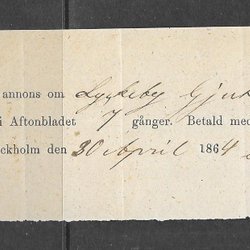 annons om Lyckeby Gjut
i Aftonbladet 7 gånger. Betald med
ckholm den 30 April 1864